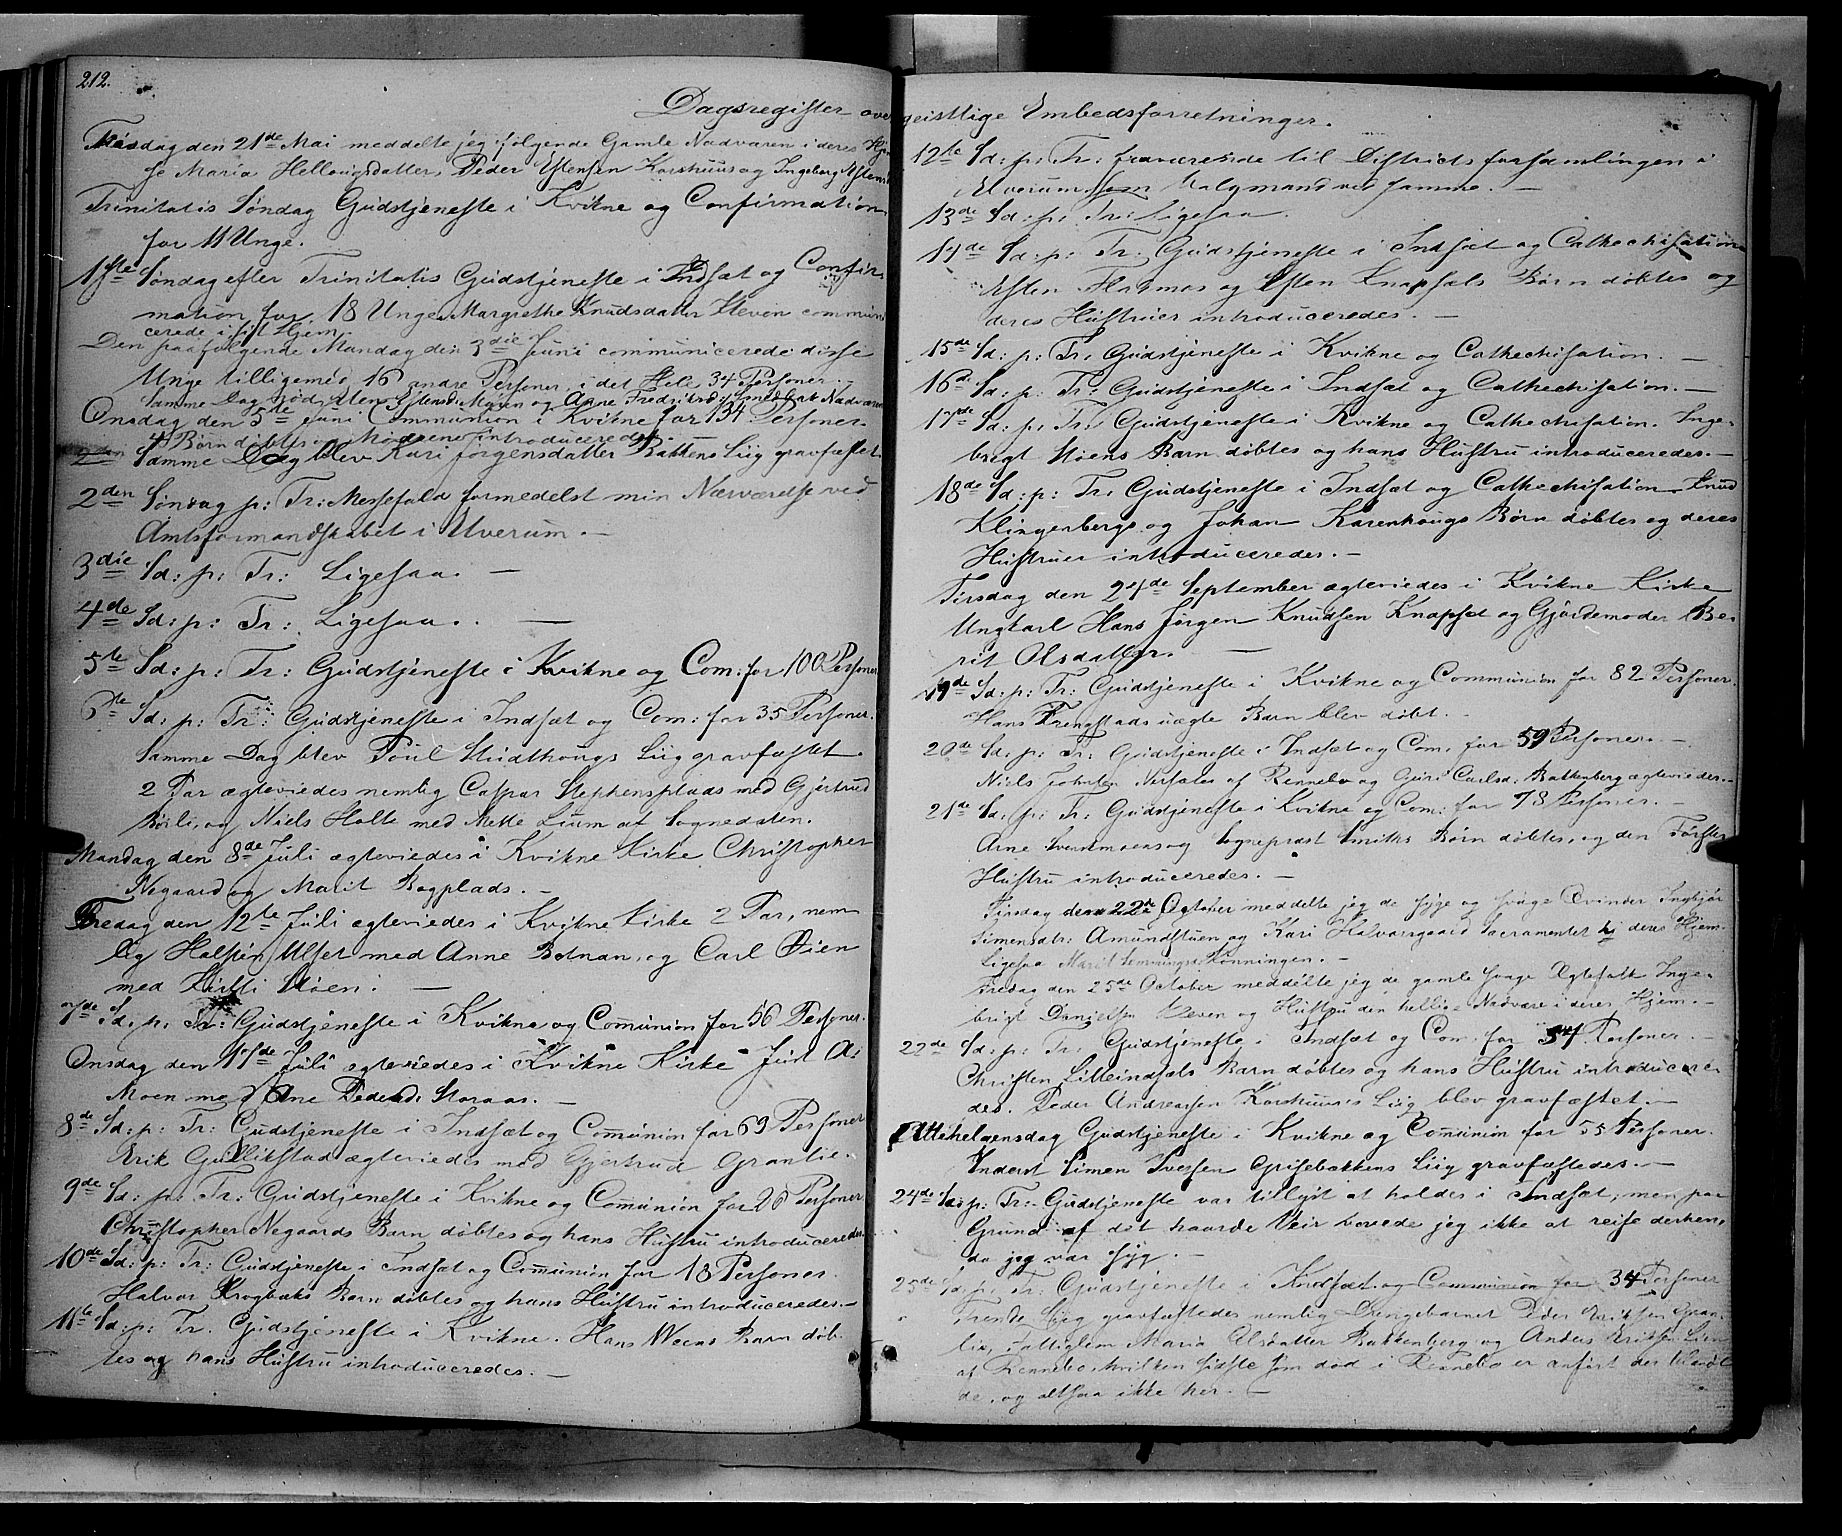 212.
Dagsregister over
Tirsdag den 21de Mai meddelte jeg følgende Gamle Nadveren i deres Hjem
Maria Hellougsdatter, Peder Estensen Korshuus og Ingeborg Estens
Trinitatis Søndag Gudstjeneste i Kvikne og Confirmation
for 11 Unge.
1ste Søndag efter Trinitatis Gudstjeneste i Indset og Confir-
mation for 18 Unge. Margrethe Knudsdatter Stevon commun
cerede i sit Hjem.
Den paafølgende Mandag den 3die Juni communicerede disse
Unge tilligemed 16 andre Personer, i det Hele 34 Personer.
Samme Dag nød Esten Estens: Moen og Anne Fredriksd: Smedbak Nadveren
Onsdag den 5te Juni Communion i Kvikne for 134 Personer.
4 Børn døbtes og Mødrene introduceredes.
Samme Dag blev Kari Jørgensdatter Bakkens Liig gravfæstet.
2den Søndag p: Tr: Messefald formedelst min Nærværelse ved
Amtsformandskabet i Elverum. —
3die Sd: p: Tr: Ligesaa. —
4de Sd: p: Tr: Ligesaa. —
5te Sd: p: Tr: Gudstjeneste i Kvikne og Com: for 100 Personer
6te Sd: p: Tr: Gudstjeneste i Indset og Com: for 35 Personer.
Samme Dag blev Poul Studthougs Liig gravfæstet.
2 Par ægteviedes nemlig Caspar Stephensplads med Gjertrud
Børli, og Niels Holte med Mette Lium af Sognedalen.
Mandag den 8de Juli ægteviedes i Kvikne Kirke Christopher
Negaard og Marit Bogplads. —
Fredag den 12te Juli ægteviedes i Kvikne Kirke 2 Par, nem-
lig Halsten Ulset med Anne Botnan, og Carl Øien
med Kirsti Støen. —
7de Sd: p: Tr: Gudstjeneste i Kvikne og Communion for 56 Personer.
Onsdag den 17de Juli ægteviedes i Kvikne Kirke
Moen med Ane Pedersd: Storaas. —
8de Sd: p: Tr: Gudstjeneste i Indset og Communion for 69 Personer
Erik Gullikstad ægteviedes med Gjertrud Granlie.
9de Sd: p: Tr: Gudstjeneste i Kvikne og Communion for 20 Personer
Christopher Negaards Barn døbtes og hans Hustru introduceredes.
10de Sd: p: Tr: Gudstjeneste i Indset og Communion for 18 Personer.
Halvor Krogbaks Barn døbtes og hans Hustru introduceredes. —
11te Sd: p: Tr. Gudstjeneste i Kvikne. Hans Weens Barn døb-
tes og hans Hustru introduceredes. —
geistlige Embedsforretninger.
12te Sd: p: Tr: fraværende til Districtsforsamlingen i
Elverum som Valgmand ved samme. —
13de Sd: p: Tr: Ligesaa.
14de Sd: p: Tr. Gudstjeneste i Indset og Cathechisation
Esten Flaamos og Esten Knapsets Børn døbtes og
deres Hustruer introduceredes. —
15de Sd: p: Tr. Gudstjeneste i Kvikne og Cathechisation. —
16de Sd: p: Tr: Gudstjeneste i Indset og Cathechisation. —
17de Sd: p: Tr: Gudstjeneste i Kvikne og Cathechisation. Inge-
brigt Støens Barn døbtes og hans Hustru introduceredes. —
18de Sd: p: Tr. Gudstjeneste i Indset og Cathechisation. Knud
Klingenbergs og Johan Karenhougs Børn døbtes og deres
Hustruer introduceredes. —
Tirsdag den 24de September ægteviedes i Kvikne Kirke
Ungkarl Hans Jørgen Knudsen Knapset og Gjordemoder Be-
rit Olsdatter. —
19de Sd: p: Tr: Gudstjeneste i Kvikne og Communion for 82 Personer.
Hans Frengstads uægte Barn blev døbt.
20de Sd: p: Tr: Gudstjeneste i Indset og Com. for 59 Personer. —
Niels Johnsen af Rennebo og Guri Carlsd: Bakkenberg ægteviedes. —
21de Sd: p: Tr: Gudstjeneste i Kvikne og Com: for 78 Personer. —
Arne Svennmoens og Sognepræst Smiths Børn døbtes, og den Førstes
Hustru introduceredes. —
Tirsdag den 22de October meddelte jeg de syge og svage Qvinder Ingbjør
Simensdtr: Amundstuen og Kari Halvorsgaard Sacramentet i deres Hjem.
Ligesaa Marit Rønningen. —
Fredag den 25de October meddelte jeg de gamle svage Ægtefolk Inge-
brigt Danielsen Steven og Hustru den hellige Nadvere i deres Hjem. —
22de Sd: p: Tr: Gudstjeneste i Indset og Com: for 54 Personer. —
Christen Lilleindsets Barn døbtes og hans Hustru introducere-
des. Peder Andreassen Korshuus's Liig blev gravfæstet. —
Allehelgensdag Gudstjeneste i Kvikne og Communion for 55 Personer.
Inderst Simen Svesen Grisebakkens Liig gravfæstedes. —
24de Sd: p: Tr: Gudstjeneste var tillyst at holdes i Indset, men paa
Grund af det haarde Veir torede jeg ikke at reise derhen,
da jeg var syg. —
25de Sd: p: Tr: Gudstjeneste i Indset og Communion for 34 Personer
Trende Liig gravfæstedes nemlig Drengebarnet Peder Eriksen Gran-
lie, Fattiglem Maria Olsdatter Bakkenberg og Anders Eriksen Lien
af Rennebo, hvilken sidste som død i Rennebo er anført der blandt
de, og altsaa ikke her. —